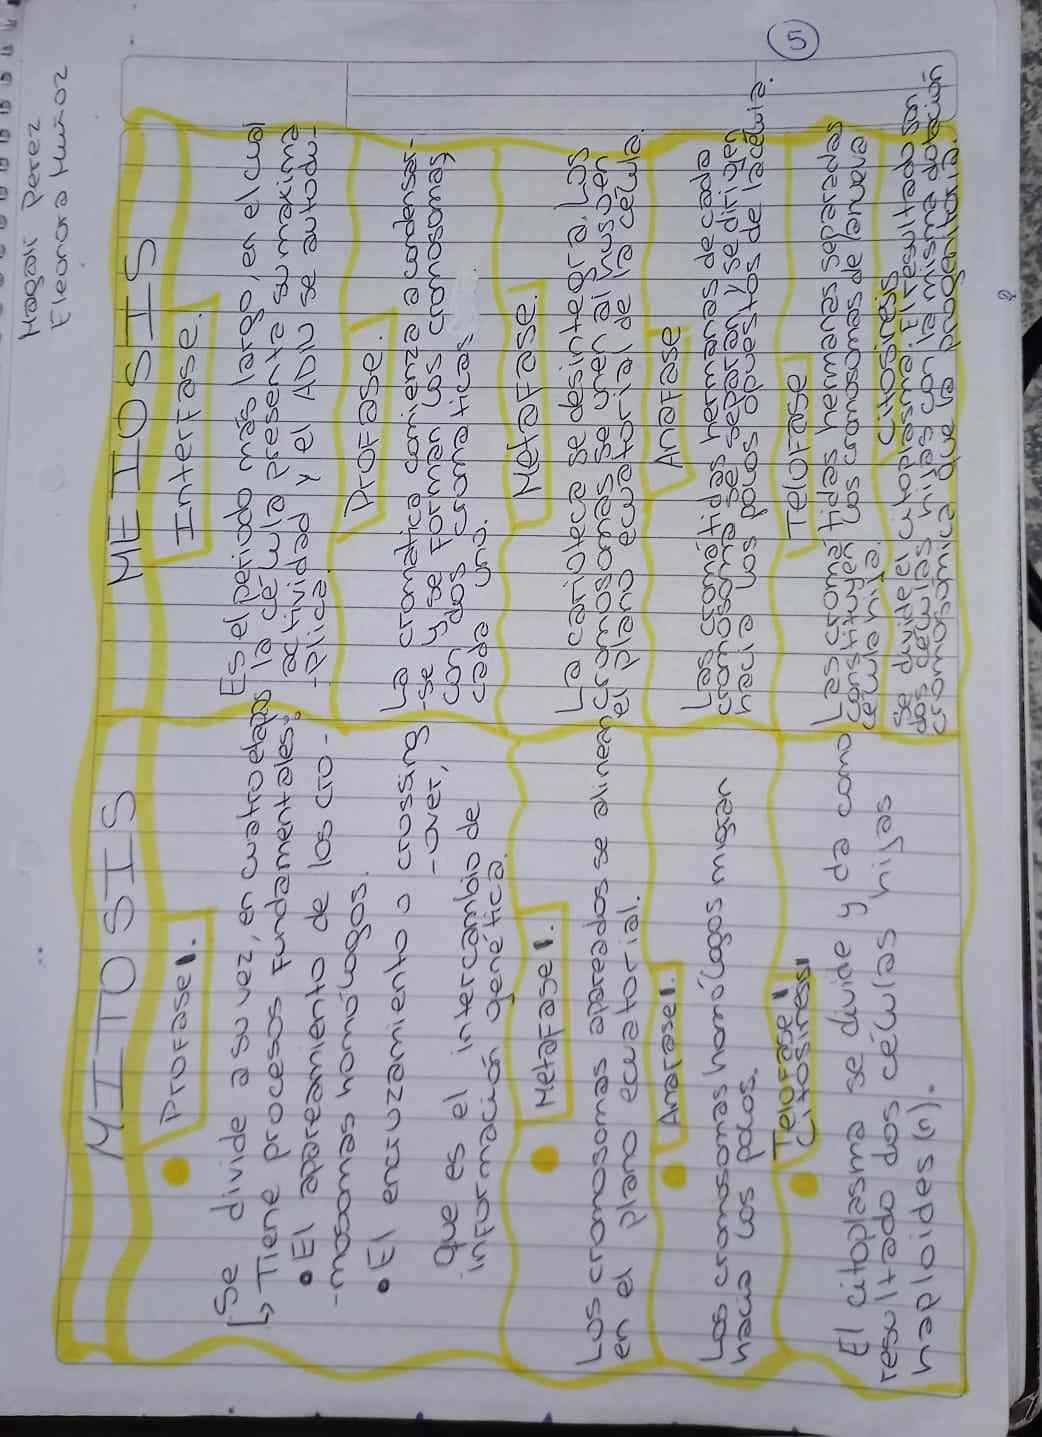 5
Magalí Perez
Eleonora Muñoz
MITOSIS
Profase 1.
Se divide a su vez, en cuatro etapas
↳ Tiene procesos fundamentales:
• El apareamiento de los cro-
-mosomas homólogos.
• El encruzamiento o crossing
-over,
que es el intercambio de
información genética.
Metafase 1.
Los cromosomas apareados se alinean
en el plano ecuatorial.
Anafase 1.
Los cromosomas homólogos migran
hacia los polos.
Telofase 1
Citosinesis 1
El citoplasma se divide y da como
resultado dos células hijas
haploides (n).
MEIOSIS
Interfase.
Es el periodo más largo, en el cual
la célula presenta su maxima
actividad y el ADN se autodu-
-plica.
Profase.
La cromatica comienza a condensar-
-se y se forman los cromosomas,
con dos cromaticas
cada uno.
Metafase.
La carioleca se desintegra. Los
cromosomas se unen al huso en
el plano ecuatorial de la célula.
Anafase
Las cromátidas hermanas de cada
cromosoma se separan y se dirigen
hacia los polos opuestos de la célula.
Telofase
Las cromátidas hermanas separadas
constituyen los cromosomas de la nueva
célula hija.
Citosinesis
Se divide el citoplasma. El resultado son
dos células hijas con la misma dotación
cromosomica que la progenitoria.